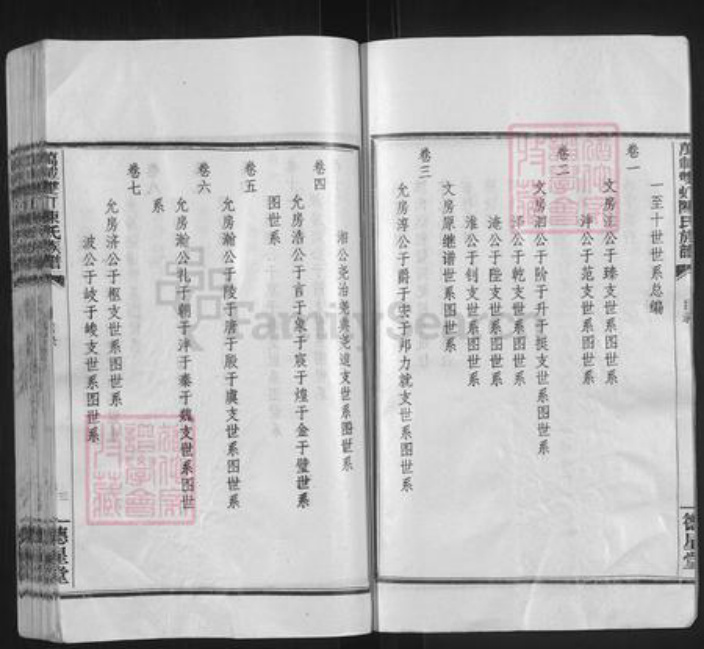 卷一
一至十世世系总编
文房江公于臻支世系图世系
泮公于范支世系图世系
卷二
文房泗公于阶于升于挺支世系图世系
泽公于乾支世系图世系
淹公于陛支世系图世系
淮公于钊支世系图世系
文房原继谱世系图世系
卷三
允房淳公于爵于宏于邦力就支世系图世系
德星堂
卷四
湘公尧治尧典尧道支世系图世系
允房浩公于言于象于宸于煌于金于璧世系
图世系
卷五
允房瀚公于陵于唐于殿于虞支世系图世系
卷六
允房瀚公礼于朝于泮于秦于魏支世系图世
系
卷七
允房济公于枢支世系图世系
波公于岐于峻支世系图世系
三
德星堂
FamilySearch